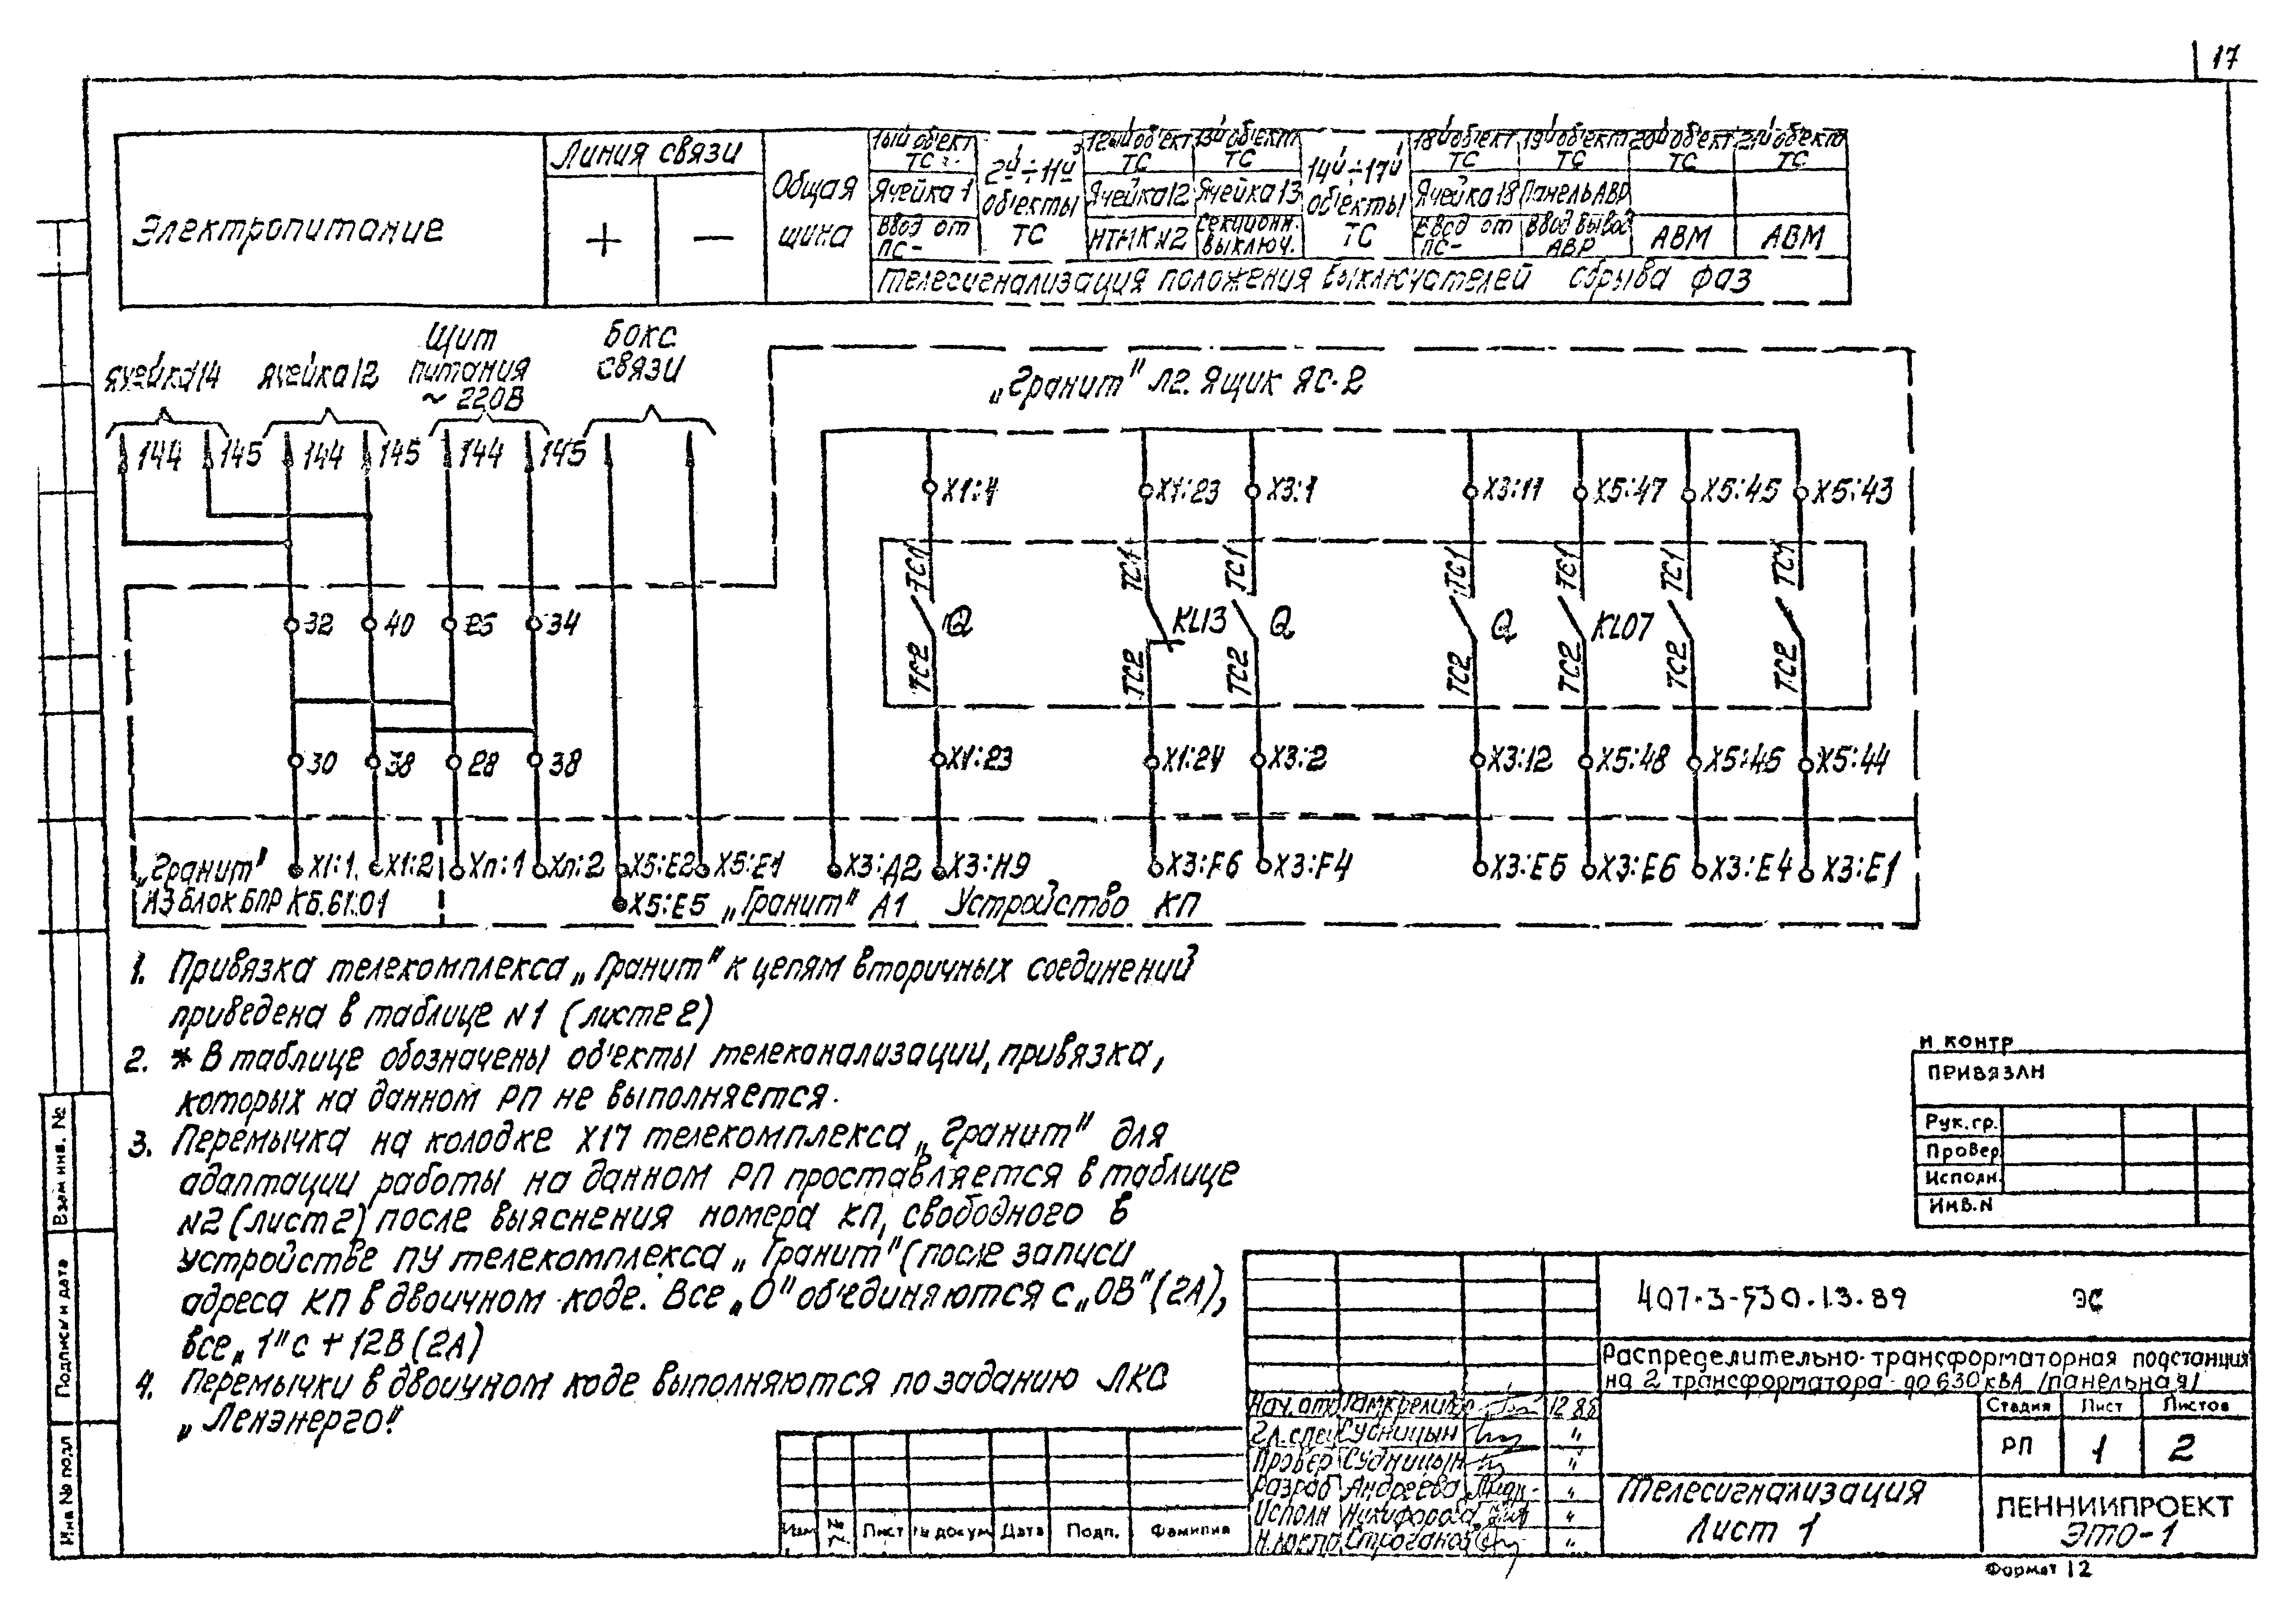 17
Электропитание
Линия связи
+
—
Общая
шина
1ый объект
ТС
Ячейка 1
Ввод от
ПС-
2й÷11й
объекты
ТС
12ый объект
ТС
Ячейка 12
НТМК №2
13й объект
ТС
Ячейка 13
Секционн.
выключ.
14й÷17й
объекты
ТС
18й объект
ТС
Ячейка 18
Ввод от
ПС-
19й объект
ТС
Панель АВР
Ввод вывод
АВР
20й объект
ТС
АВМ
21й объект
ТС
АВМ
Телесигнализация положения выключателей обрыва фаз
ячейка 14
ячейка 12
Щит
питания
~ 220В
бокс
связи
„Гранит" Л2. Ящик ЯС-2
144 145 144 145 144 145
X1:4 X1:23 X3:1 X3:11 X5:47 X5:45 X5:43
ТС1 ТС1 ТС1 ТС1 ТС1 ТС1 ТС1
32 40 26 34
Q KL13 Q Q KL07
ТС2 ТС2 ТС2 ТС2 ТС2 ТС2 ТС2
30 38 28 38
X1:23 X1:24 X3:2 X3:12 X5:48 X5:46 X5:44
„Гранит" X1:1. X1:2 Xп:1 Xп:2 X5:E2 X5:E1 X3:Д2 X3:H9 X3:F6 X3:F4 X3:E5 X3:E6 X3:E4 X3:E1
А3 Блок БПР КБ.61.01
X5:E5 „Гранит" А1 Устройство КП
1. Привязка телекомплекса „Гранит" к цепям вторичных соединений
приведена в таблице №1 (листе 2)
2. * В таблице обозначены объекты телеканализации, привязка,
которых на данном РП не выполняется.
3. Перемычка на колодке X17 телекомплекса „Гранит" для
адаптации работы на данном РП проставляется в таблице
№2 (лист 2) после выяснения номера КП, свободного в
устройстве ПУ телекомплекса „Гранит" (после записи
адреса КП в двоичном коде. Все „0" объединяются с „0В" (2А),
все „1" с +12В (2А)
4. Перемычки в двоичном коде выполняются по заданию ЛКС
„Ленэнерго".
Н КОНТР
ПРИВЯЗАН
Рук.гр.
Провер.
Исполн.
Инв.N
Взам инв. №
Подпись и дата
Инв № подл
407-3-530.13.89 ЭС
Распределительно-трансформаторная подстанция
на 2 трансформатора до 630 кВА /панельная/
Нач.отд 12 88
Гл.спец Судницын "
Провер Судницын "
Разраб Андреева "
Исполн Никифорова "
Н.контр. Строганов "
Стадия Лист Листов
РП 1 2
Телесигнализация
Лист 1
ЛЕННИИПРОЕКТ
ЭТО-1
Изм Лист № докум Дата Подп. Фамилия
Формат 12